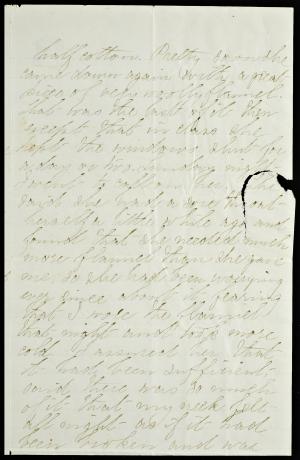 half cotton. Pretty soon she
came down again with a great
piece of very woolly flannel.
That was the last of it then
except that in class she
kept the windows shut for
a day or two. Sunday night
I went to call on her, & she
said she had a sore throat
herself a little while ago and
found that she needed much
more flannel than she gave
me. So she had been worrying
ever since about it fearing
that I wore the flannel
that night and took more
cold. I assured her that
it had been sufficient
said there was so much
of it that my neck felt
all night as if it had
been broken and was